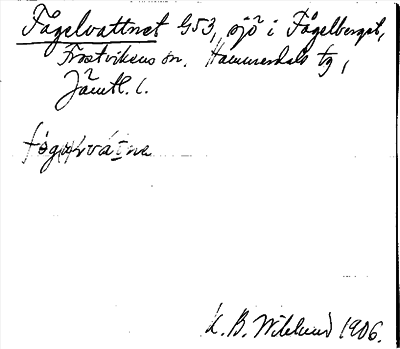 Fågelvattnet 953, sjö i Fågelberget,
Frostvikens sn. Hammerdals tg,
Jämtl. l.
K. B. Wiklund 1906.